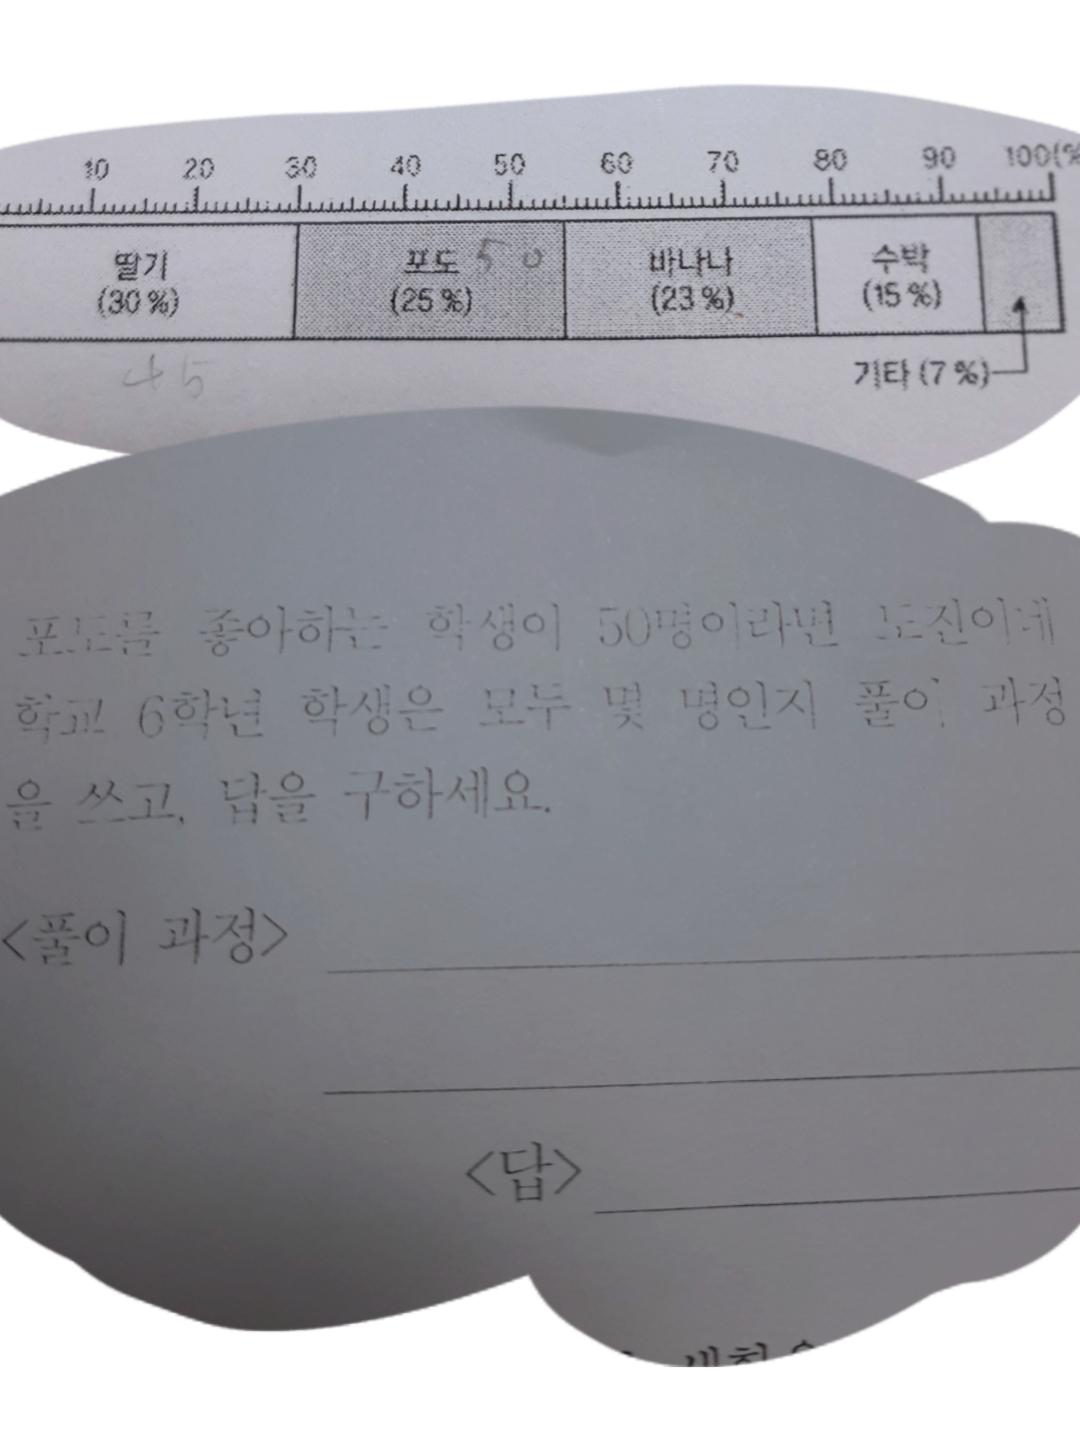 10 20 30 40 50 60 70 80 90 100(%
딸기 포도 50 바나나 수박
(30 %) (25 %) (23 %) (15 %)
45 기타 (7 %)
포도를 좋아하는 학생이 50명이라면 도진이네
학교 6학년 학생은 모두 몇 명인지 풀이 과정
을 쓰고, 답을 구하세요.
<풀이 과정>
<답>